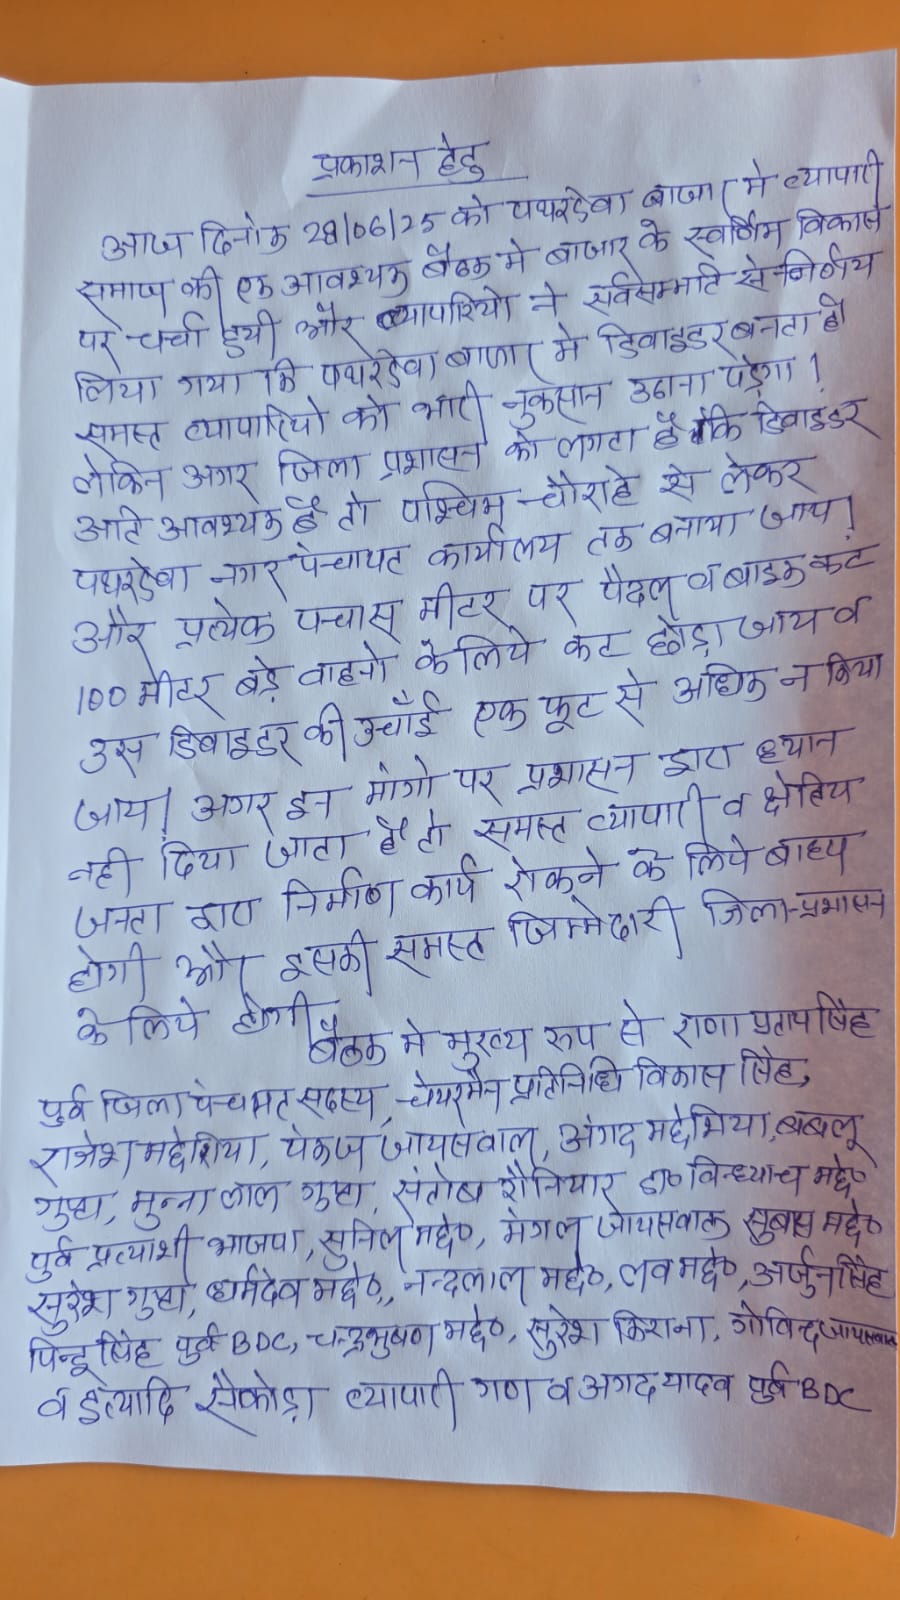 प्रकाशन हेतु
आज दिनांक 28/06/25 को पथरदेवा बाजार मे व्यापारी
समाज की एक आवश्यक बैठक मे बाजार के स्वर्णिम विकास
पर चर्चा हुयी और व्यापारियो ने सर्वसम्मति से निर्णय
लिया गया कि पथरदेवा बाजार मे डिवाइडर बनता है
समस्त व्यापारियो को भारी नुकसान उठाना पड़ेगा !
लेकिन अगर जिला प्रशासन को लगता है कि डिवाइडर
अति आवश्यक है तो पश्चिम चौराहे से लेकर
पथरदेवा नगर पंचायत कार्यालय तक बनाया जाय।
और प्रत्येक पचास मीटर पर पैदल व बाइक कट
100 मीटर बड़े वाहनो के लिये कट छोड़ा जाय व
उस डिवाइडर की उचाँई एक फूट से अधिक न किया
जाय। अगर इन मांगो पर प्रशासन द्वारा ध्यान
नही दिया जाता है तो समस्त व्यापारी व क्षेत्रिय
जनता द्वारा निर्माण कार्य रोकने के लिये बाध्य
होगी और इसकी समस्त जिम्मेदारी जिला-प्रशासन
के लिये होगी
बैठक मे मुख्य रूप से राणा प्रताप सिंह
पुर्व जिला पंचायत सदस्य, चेयरमैन प्रतिनिधि विकास सिंह,
राजेश मद्देशिया, पंकज जायसवाल, अंगद मद्देशिया, बबलू
गुप्ता, मुन्ना लाल गुप्ता, संतोष रौनियार डा० विन्ध्याच मद्दे०
पुर्व प्रत्याशी भाजपा, सुनिल मद्दे०, मंगल जायसवाल सुबास मद्दे०
सुरेश गुप्ता, धर्मदेव मद्दे०, नन्दलाल मद्दे०, लव मद्दे०, अर्जुन सिंह
पिन्टू सिंह पुर्व BDC, चन्द्रभुषण मद्दे०, सुरेश किराना, गोविन्द जायसवाल
व इत्यादि सैकोड़ा व्यापारी गण व अगद यादव पुर्व BDC